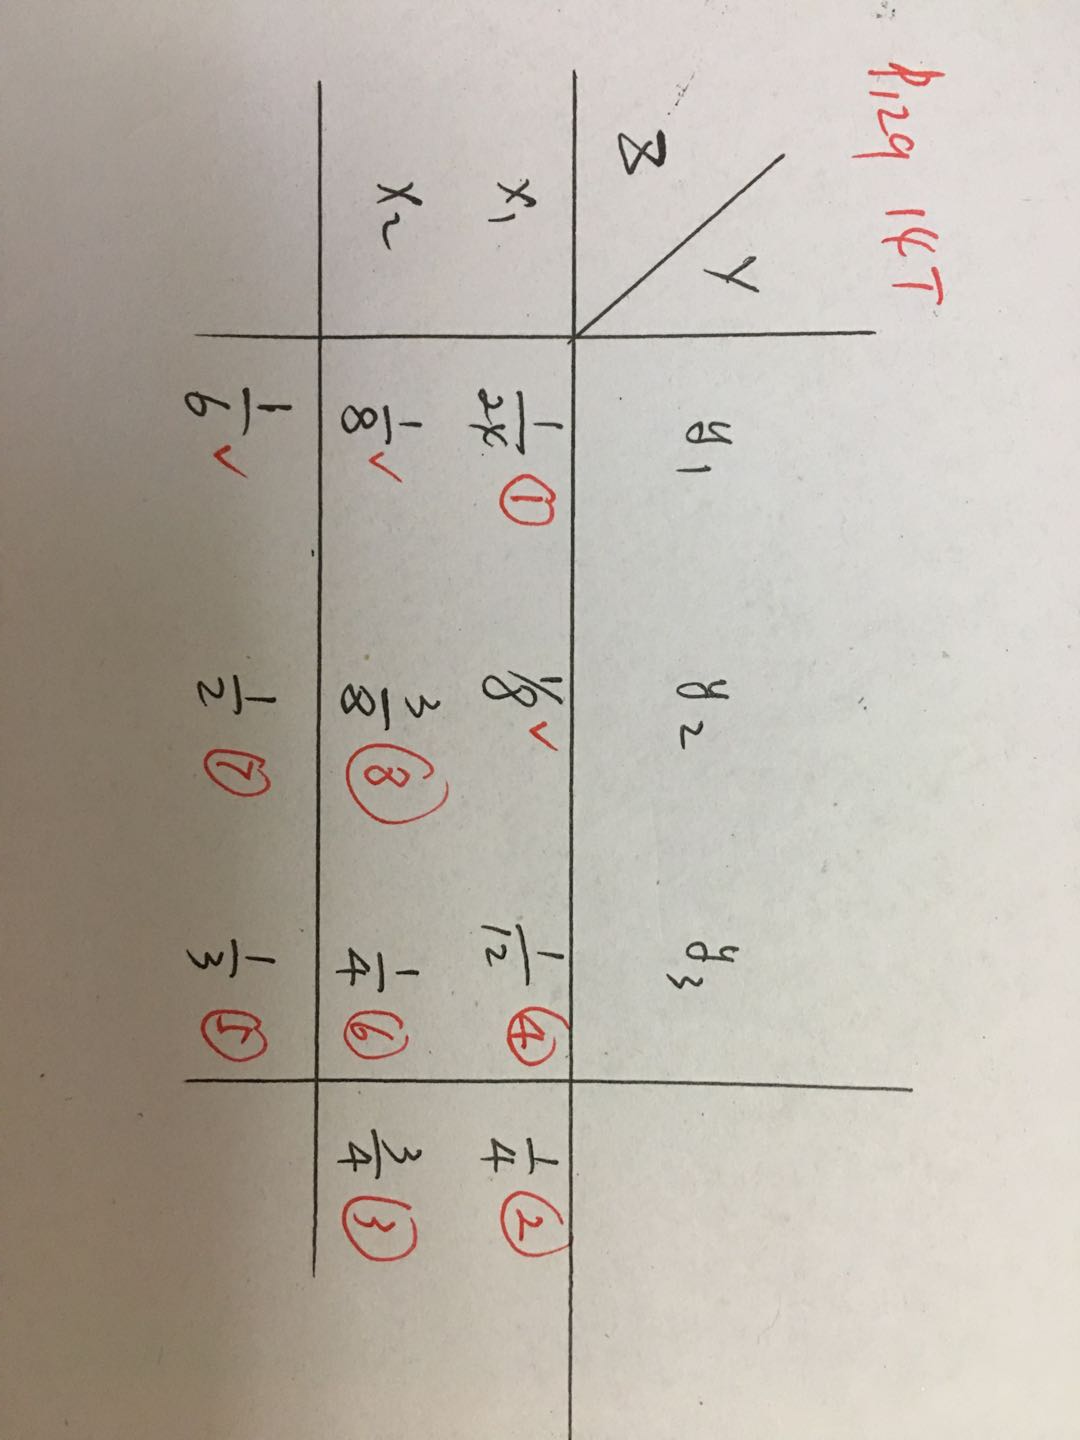 P129 14T
Y
X y1 y2 y3
x1 1/24 ① 1/8 ✓ 1/12 ④ 1/4 ②
x2 1/8 ✓ 3/8 ⑧ 1/4 ⑥ 3/4 ③
1/6 ✓ 1/2 ⑦ 1/3 ⑤